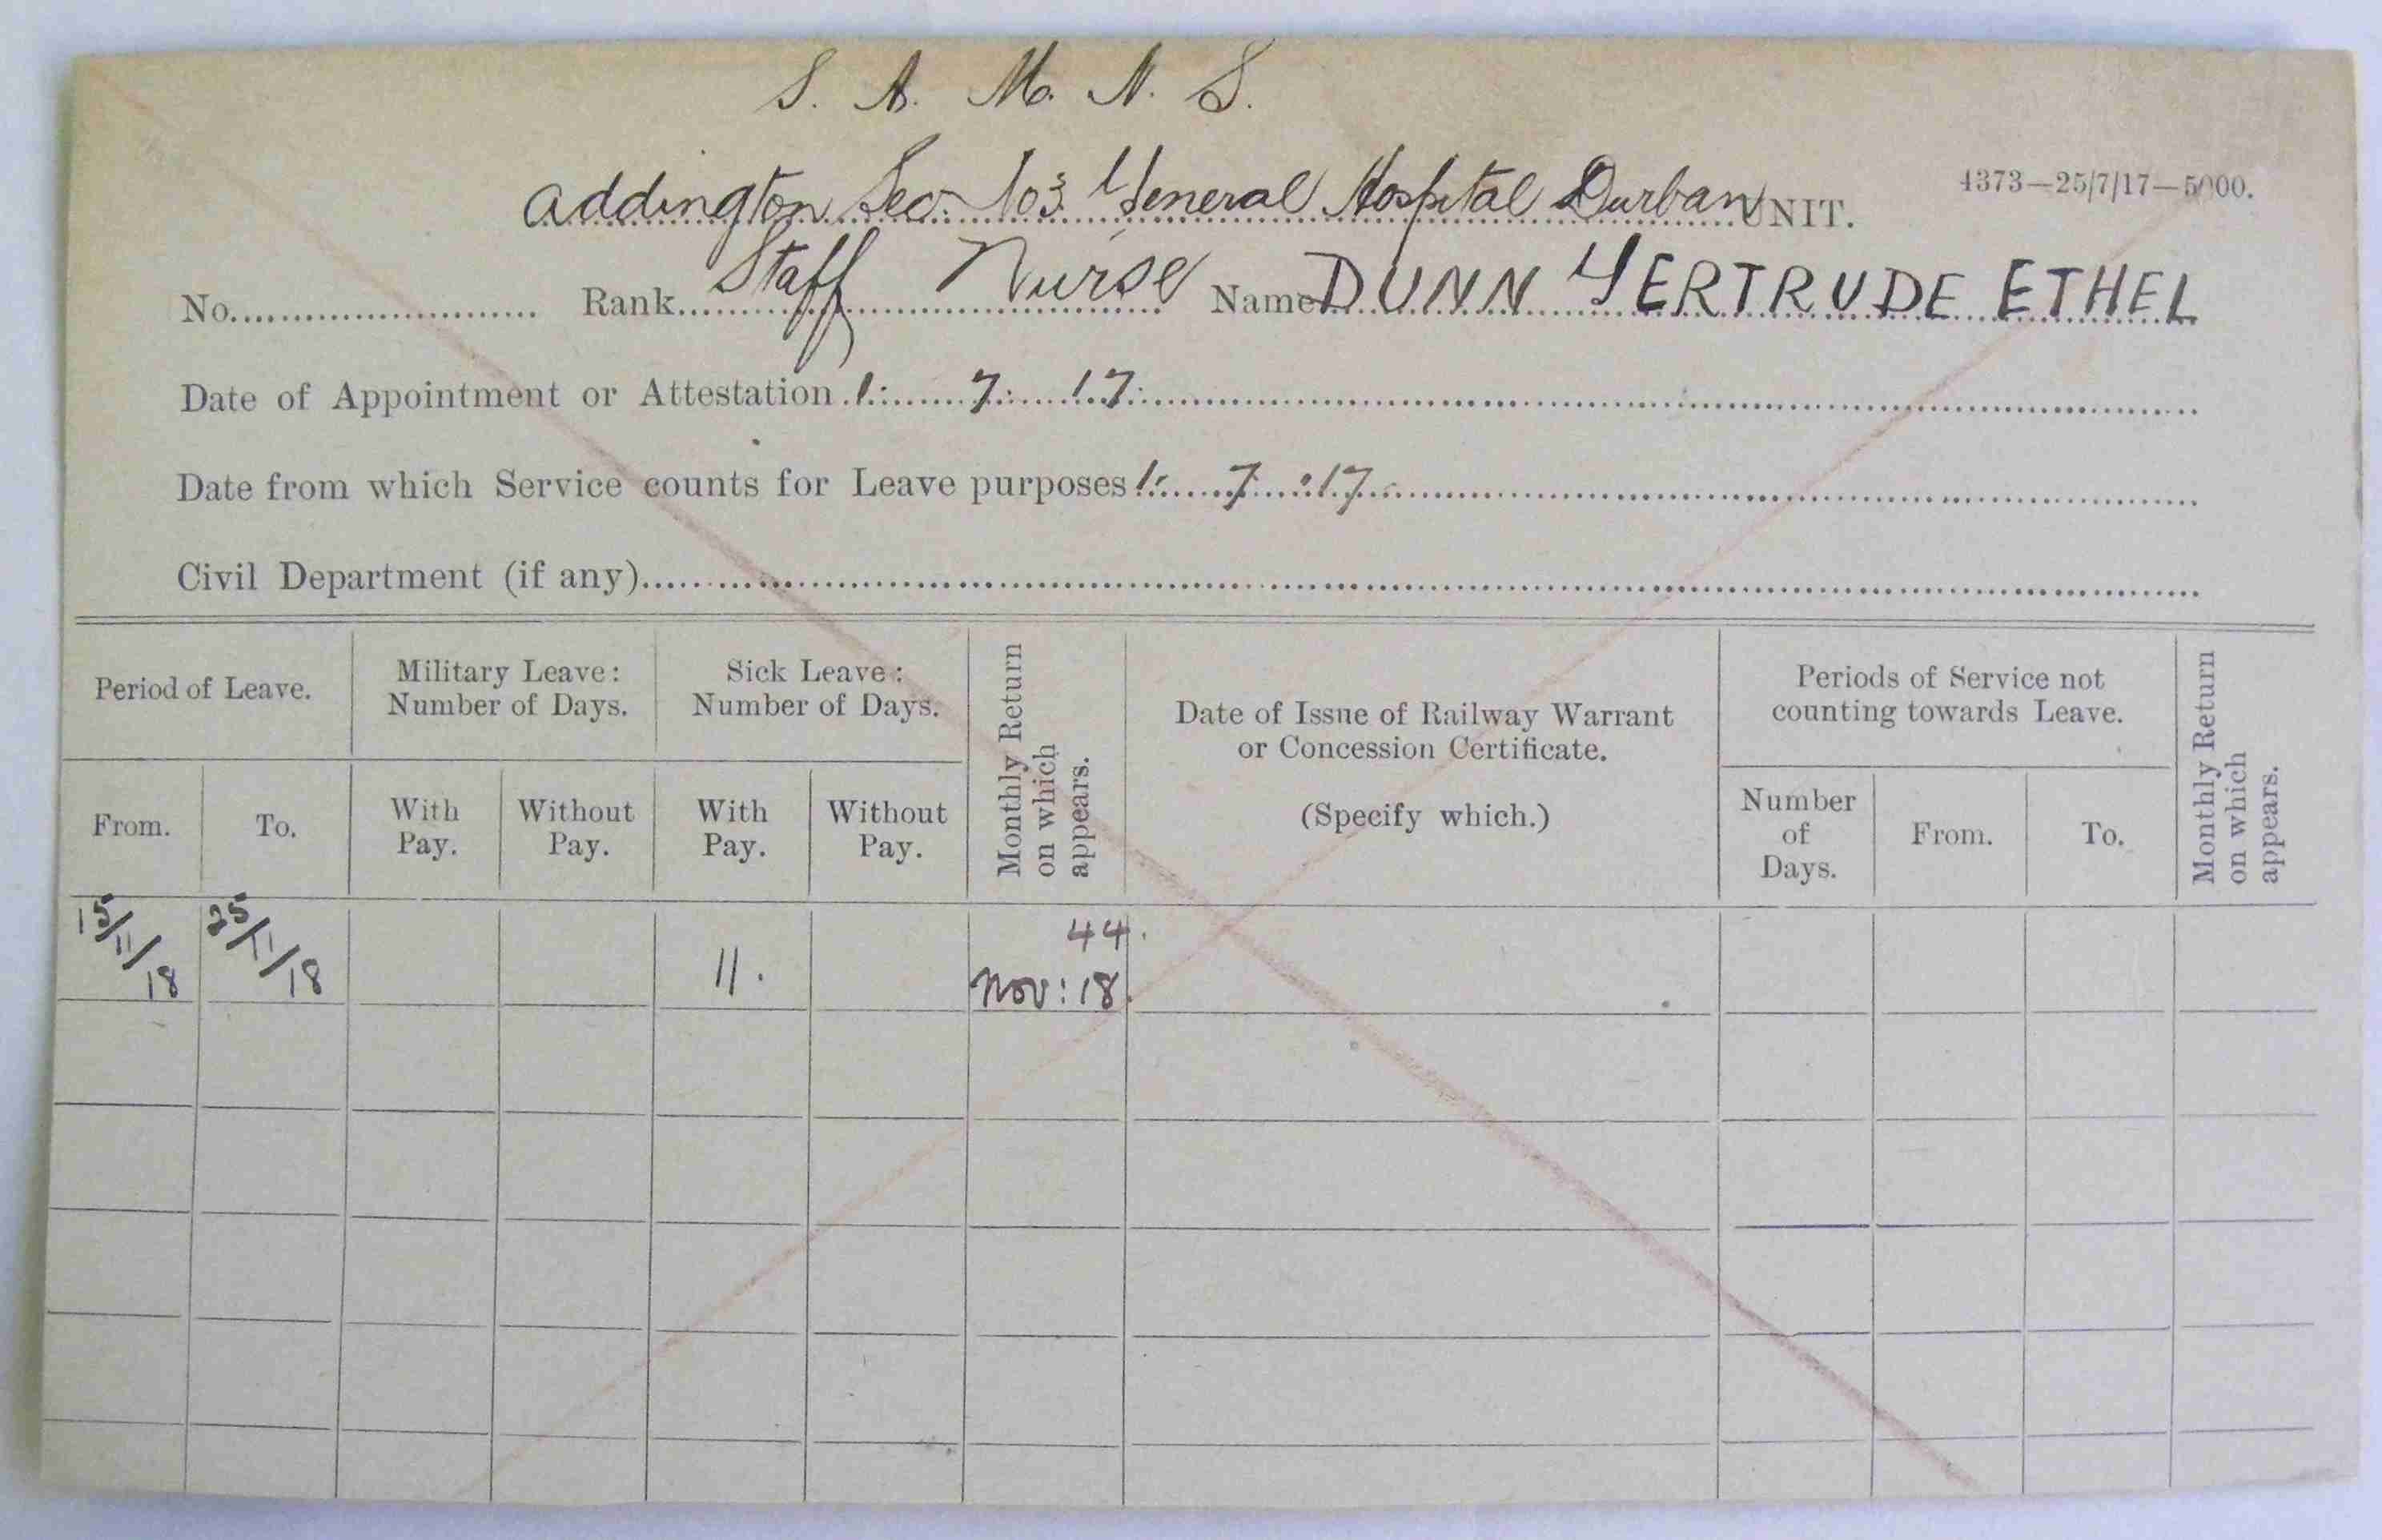 S. A. M. N. S.
Addington Sec. No 3 General Hospital Durban UNIT.
4373—25/7/17—5000.
No. Rank Staff Nurse Name DUNN GERTRUDE ETHEL
Date of Appointment or Attestation 1: 7: 17:
Date from which Service counts for Leave purposes 1: 7 :17
Civil Department (if any)
Period of Leave.
Military Leave:
Number of Days.
Sick Leave:
Number of Days.
Monthly Return
on which
appears.
Date of Issue of Railway Warrant
or Concession Certificate.
(Specify which.)
Periods of Service not
counting towards Leave.
Monthly Return
on which
appears.
From.
To.
With
Pay.
Without
Pay.
With
Pay.
Without
Pay.
Number
of
Days.
From.
To.
15/11/18
25/11/18
11.
44.
Nov: 18.